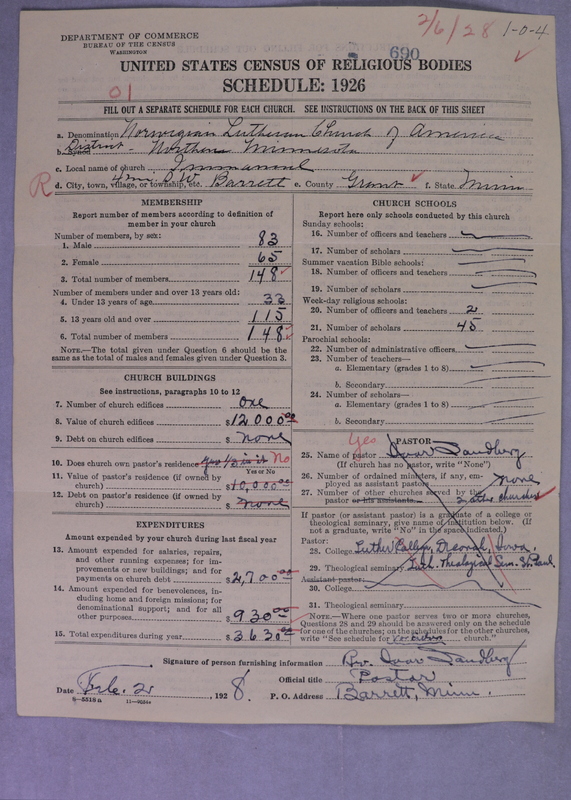 2/6/28 1-0-4
DEPARTMENT OF COMMERCE
BUREAU OF THE CENSUS
WASHINGTON
690
UNITED STATES CENSUS OF RELIGIOUS BODIES
SCHEDULE: 1926
01
FILL OUT A SEPARATE SCHEDULE FOR EACH CHURCH. SEE INSTRUCTIONS ON THE BACK OF THIS SHEET
a. Denomination Norwegian Lutheran Church of America
b. District - Northern Minnesota
c. Local name of church Immanuel
R d. City, town, village, or township, etc. 4 mi. S.W. Barrett e. County Grant f. State Minn
MEMBERSHIP
Report number of members according to definition of member in your church
Number of members, by sex:
1. Male 83
2. Female 65
3. Total number of members 148
Number of members under and over 13 years old:
4. Under 13 years of age 33
5. 13 years old and over 115
6. Total number of members 148
NOTE.—The total given under Question 6 should be the same as the total of males and females given under Question 3.
CHURCH BUILDINGS
See instructions, paragraphs 10 to 12
7. Number of church edifices One
8. Value of church edifices $12000.00
9. Debt on church edifices $ none
10. Does church own pastor's residence Yes 1/3 in it No
Yes or No
11. Value of pastor's residence (if owned by church) $10,000.00
12. Debt on pastor's residence (if owned by church) $ none
EXPENDITURES
Amount expended by your church during last fiscal year
13. Amount expended for salaries, repairs, and other running expenses; for improvements or new buildings; and for payments on church debt $2,700.00
14. Amount expended for benevolences, including home and foreign missions; for denominational support; and for all other purposes $930.00
15. Total expenditures during year $3630.00
CHURCH SCHOOLS
Report here only schools conducted by this church
Sunday schools:
16. Number of officers and teachers
17. Number of scholars
Summer vacation Bible schools:
18. Number of officers and teachers
19. Number of scholars
Week-day religious schools:
20. Number of officers and teachers 2
21. Number of scholars 45
Parochial schools:
22. Number of administrative officers
23. Number of teachers—
a. Elementary (grades 1 to 8)
b. Secondary
24. Number of scholars—
a. Elementary (grades 1 to 8)
b. Secondary
Yes PASTOR
25. Name of pastor Ivar Sandberg
(If church has no pastor, write "None")
26. Number of ordained ministers, if any, employed as assistant pastors none
27. Number of other churches served by the pastor or his assistants 2 other churches
If pastor (or assistant pastor) is a graduate of a college or theological seminary, give name of institution below. (If not a graduate, write "No" in the space indicated.)
Pastor:
28. College Luther College, Decorah, Iowa.
29. Theological seminary Luth. Theological Sem. St. Paul
Assistant pastor:
30. College
31. Theological seminary
NOTE.—Where one pastor serves two or more churches, Questions 28 and 29 should be answered only on the schedule for one of the churches; on the schedules for the other churches, write "See schedule for church."
Signature of person furnishing information Rev. Ivar Sandberg
Official title Pastor
Date Feb. 2, 1928. P. O. Address Barrett, Minn.
8-5518a 11-9634